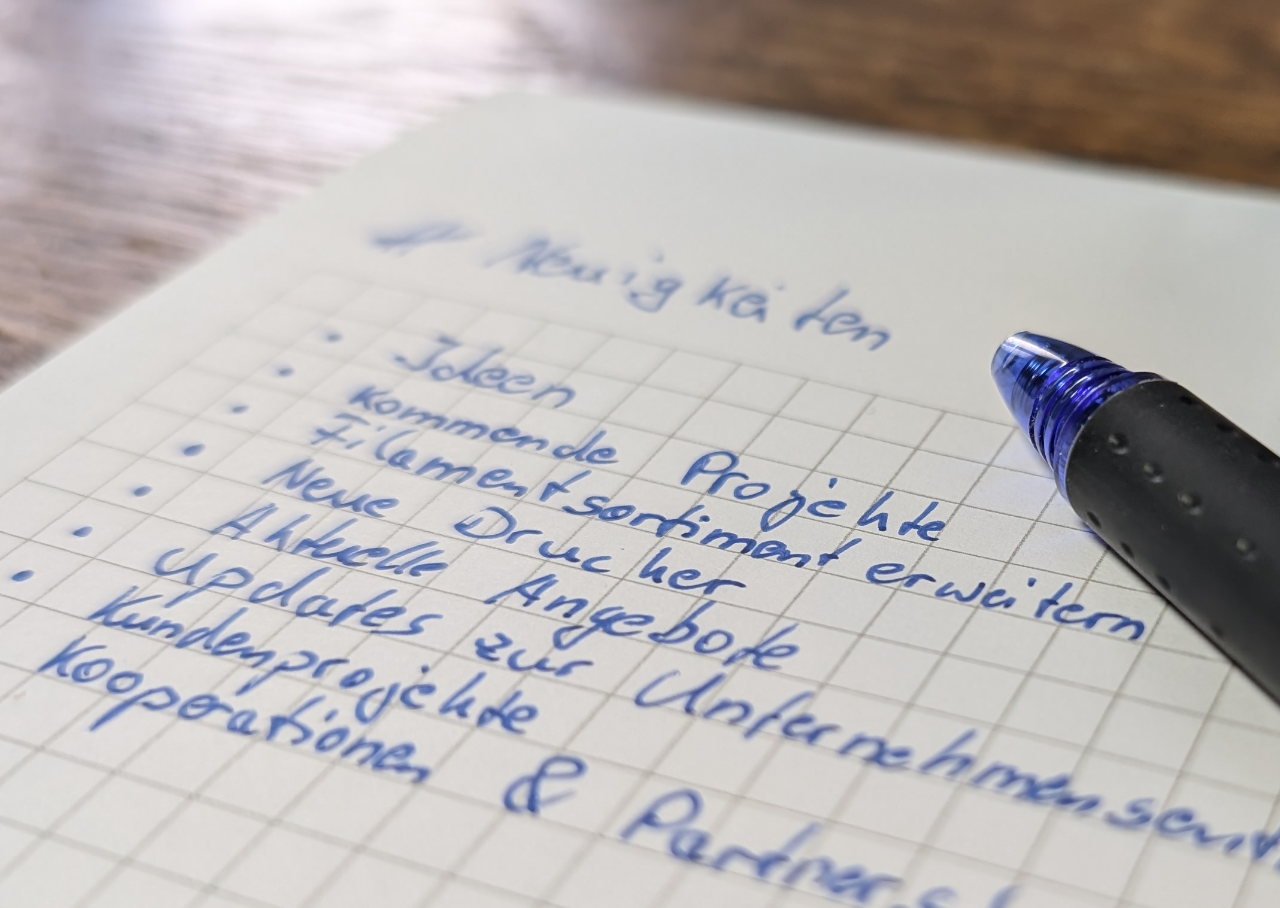 // Neuigkeiten
• Ideen
• Kommende Projekte
• Filamentsortiment erweitern
• Neue Drucker
• Aktuelle Angebote
• Updates zur
• Kundenprojekte
Kooperationen &